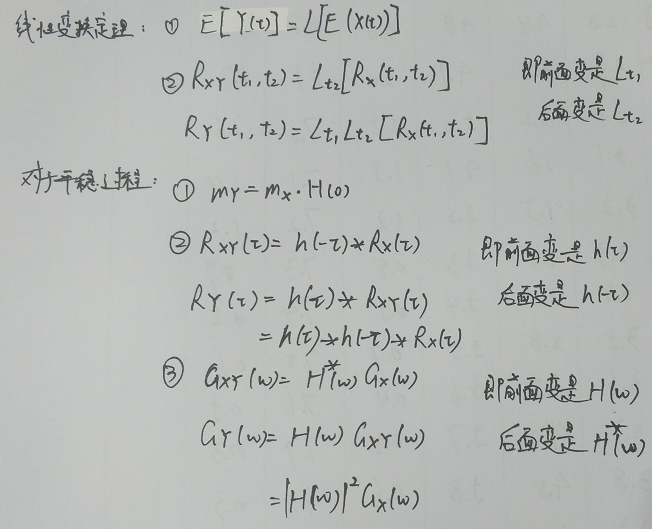 线性变换定理：① E[Y(t)]=L[E(X(t))]
② RXY(t₁,t₂)=Lt₂[RX(t₁,t₂)] 即前面变是Lt₁
RY(t₁,t₂)=Lt₁Lt₂[RX(t₁,t₂)] 后面变是Lt₂
对于平稳过程：① mY=mX·H(0)
② RXY(τ)=h(-τ)*RX(τ) 即前面变是h(τ)
RY(τ)=h(τ)*RXY(τ) 后面变是h(-τ)
=h(τ)*h(-τ)*RX(τ)
③ GXY(ω)=H*(ω)GX(ω) 即前面变是H(ω)
GY(ω)=H(ω)GXY(ω) 后面变是H*(ω)
=|H(ω)|²GX(ω)